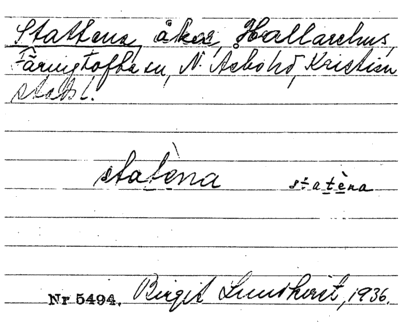 Stattena åkar, Hallarehus,
Färingtofta sn, N. Åsbo hd, Kristian
stads l.
statèna statèna
Nr 5494. Birgit Lundkvist, 1936.